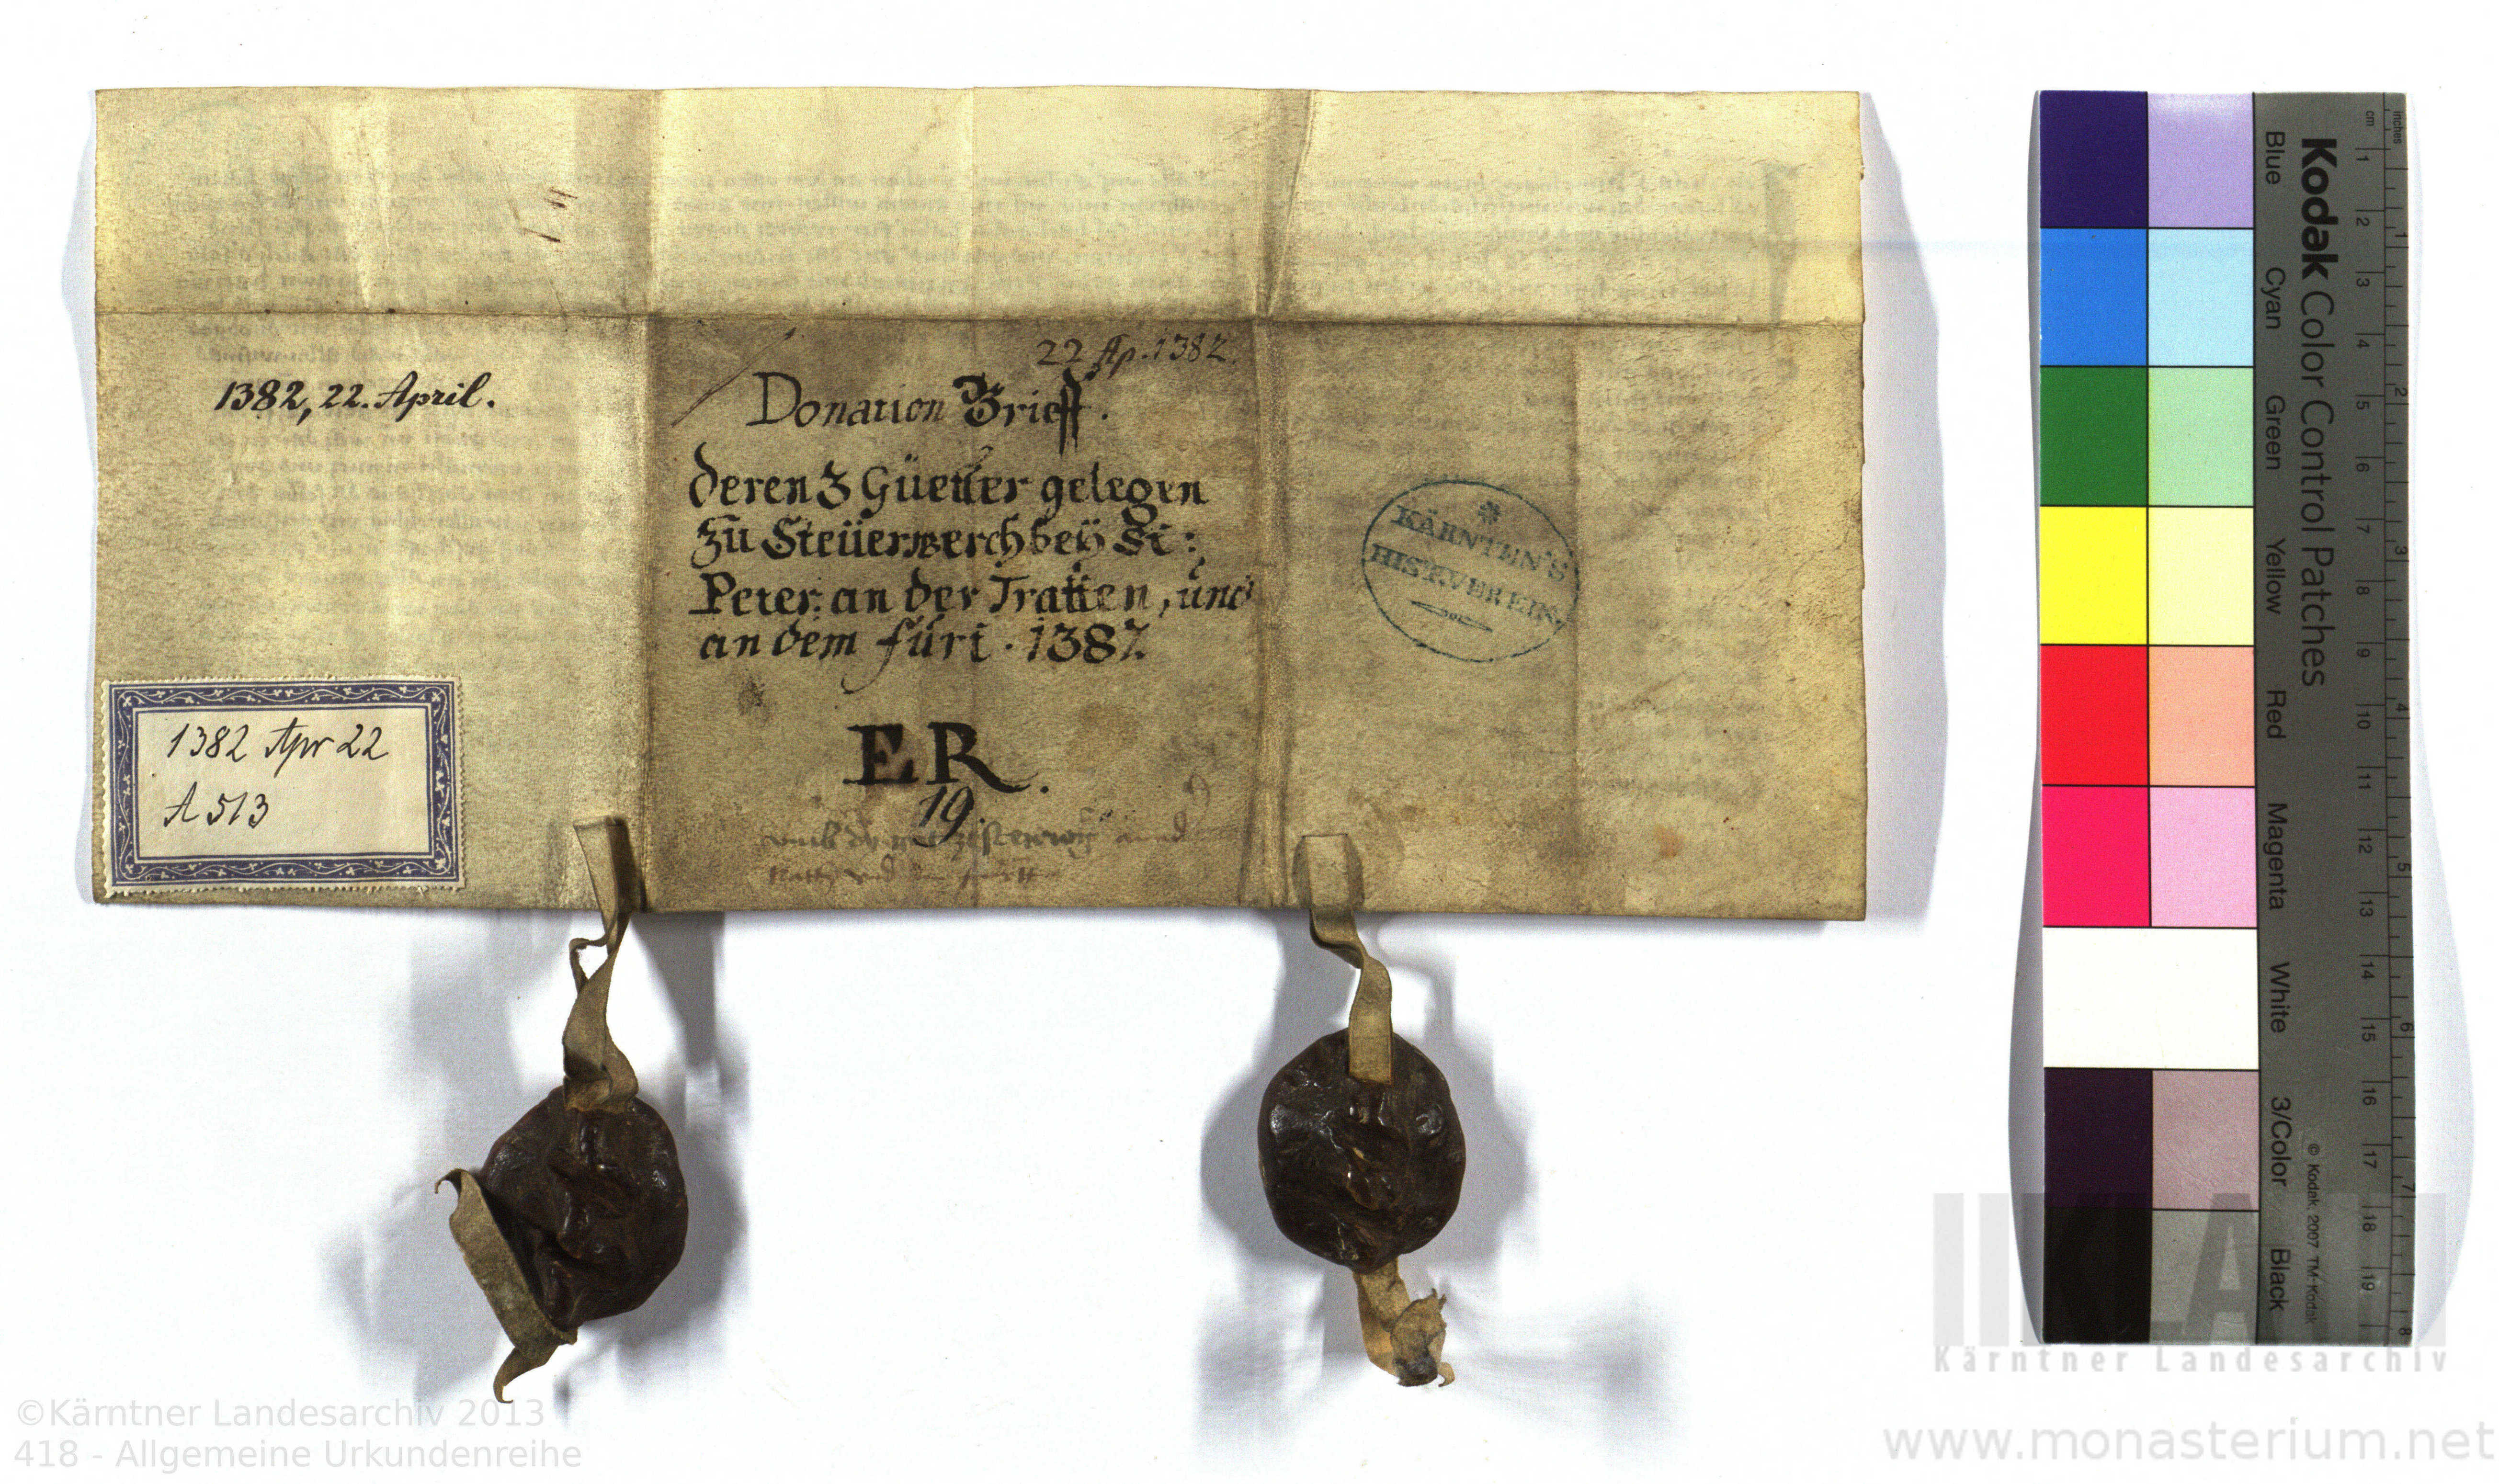 22 Ap. 1382.
1382, 22. April.
Donation Brieff.
deren 3 Güetter gelegen
zu Steüerwerch beÿ St:
Peter an der Tratten, und
an dem furt. 1382
ER.
19.
KÄRNTEN'S
HIST.VEREIN.
1382 Apr 22
A 513
Kodak Color Control Patches
Blue Cyan Green Yellow Red Magenta White 3/Color Black
© Kodak, 2007 TM: Kodak
cm 1 2 3 4 5 6 7 8 9 10 11 12 13 14 15 16 17 18 19
inches 1 2 3 4 5 6 7 8
KLA
Kärntner Landesarchiv
©Kärntner Landesarchiv 2013
418 - Allgemeine Urkundenreihe
www.monasterium.net